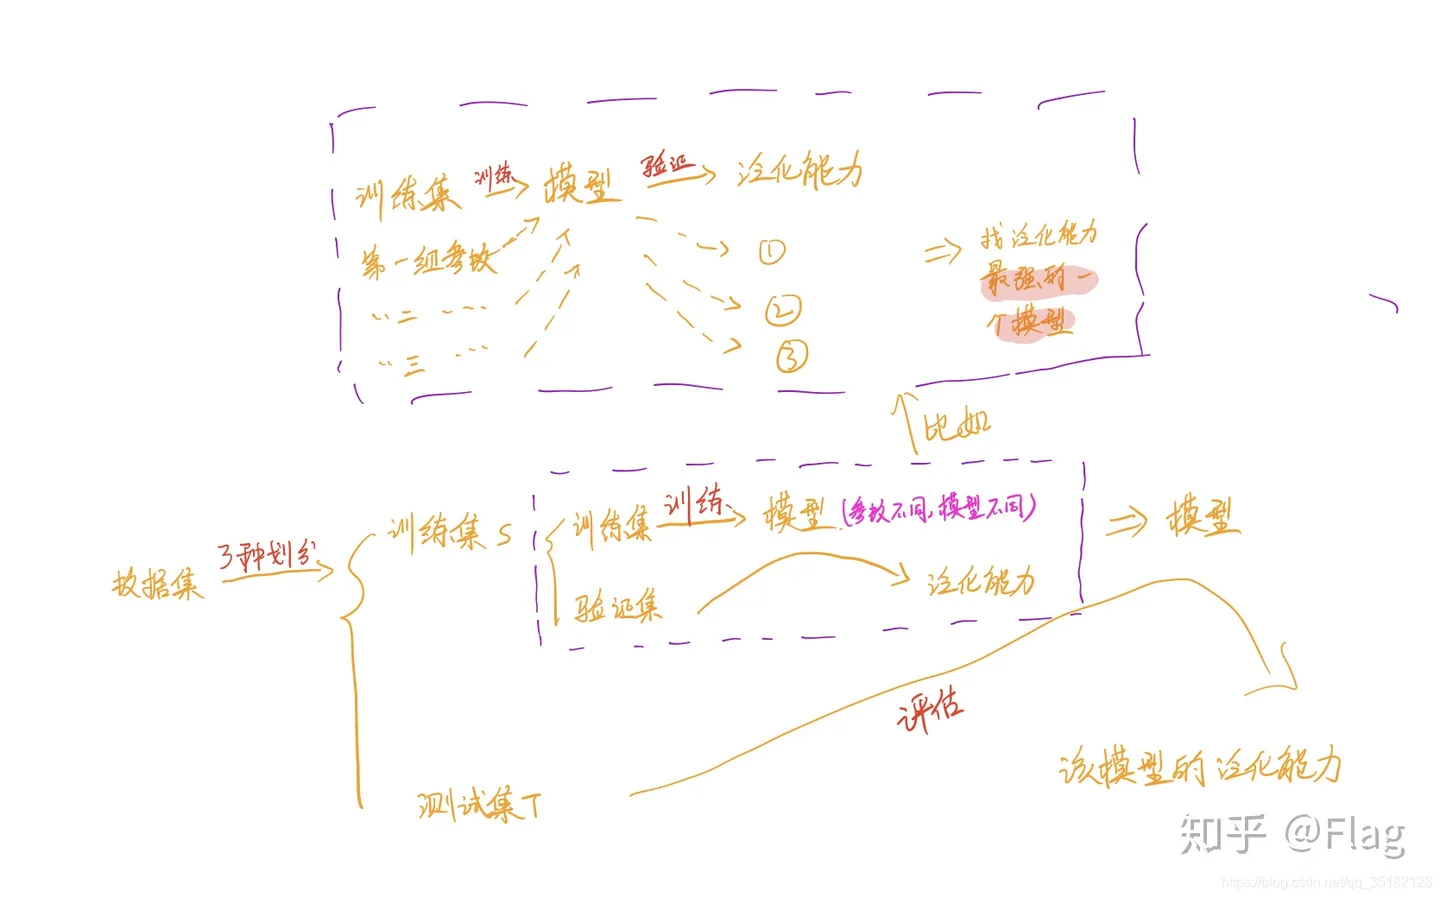 训练集 训练 模型 验证 泛化能力
第一组参数
〃二 ……
〃三 ……
①
②
③
找泛化能力
最强的一
个模型
比如
数据集 3种划分
训练集S
训练集 训练 模型 (参数不同,模型不同)
验证集
泛化能力
模型
测试集T
评估
该模型的泛化能力
知乎 @Flag
https://blog.csdn.net/qq_35182128